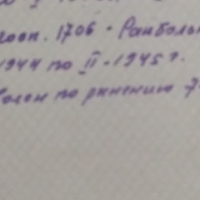 госп. 1706 - Ранболь
1944 по II - 1945 г.
волен по ранению 7